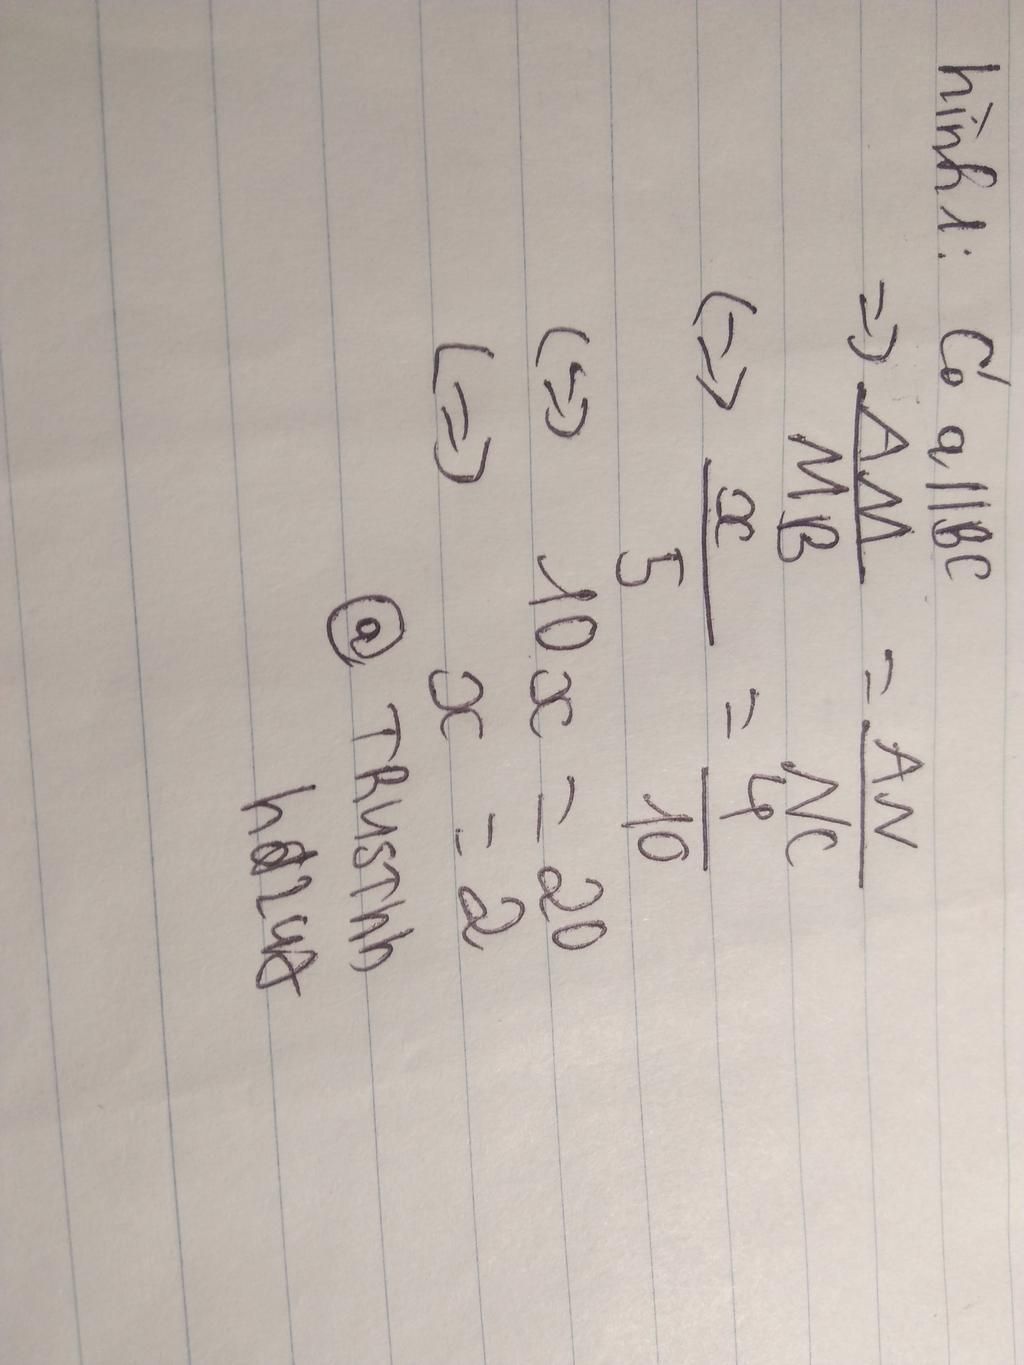 hình 1: Có a//BC
=> AM/MB = AN/NC
<=> x/5 = 4/10
<=> 10x = 20
<=> x = 2
@ TRUSThh